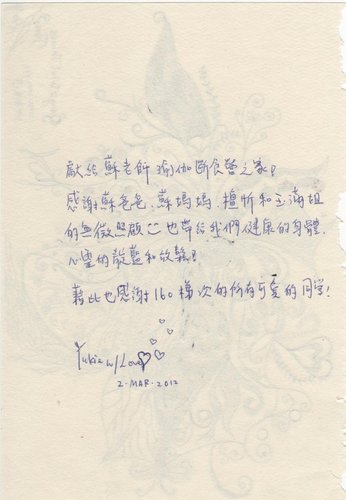 獻給蘇老師 瑜伽斷食營之家!
感謝蘇爸爸、蘇媽媽、檀忻和玉滿姐
的無微照顧 也帶給我們健康的身體,
心靈的 和放鬆!
藉此也感謝160梯次的所有可愛的同学!
Yukie w/ Love
2·MAR·2012